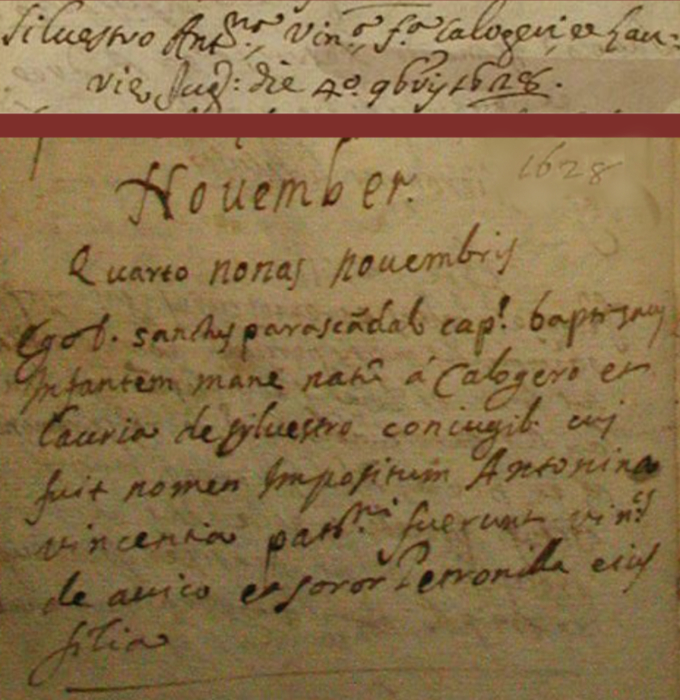 Siluestro Ant.na Vin.a f.a Calogeri et Lau-
rie Jug: die 4o 9bris 1628.
November.
1628
Quarto nonas novembris
Ego D. sanctus parascãdal cap.s baptizavi
Infantem mane natã á Calogero et
Lauria de sylvestro coniugib cui
fuit nomen Impositum Antonina
vincentia patrini fuerunt vin.s
de amico et soror Petronilla eius
filia